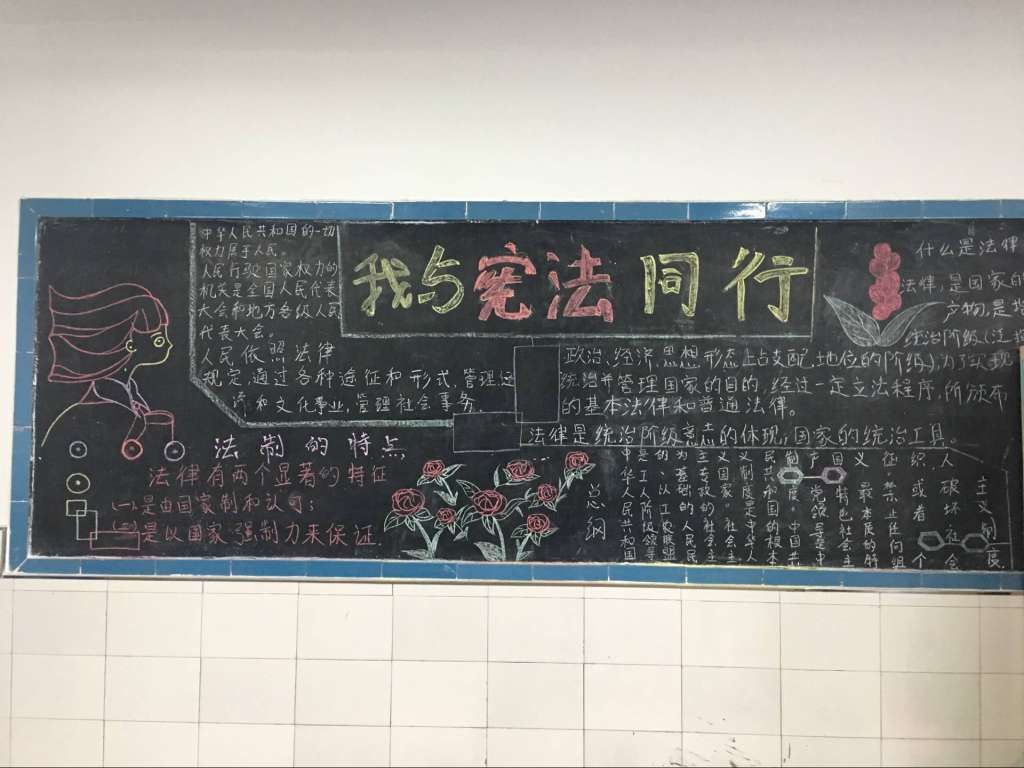 我与宪法同行
中华人民共和国的一切
权力属于人民。
人民行驶国家权力的
机关是全国人民代表
大会和地方各级人民
代表大会。
人民依照法律
规定，通过各种途征和形式，管理
济和文化事业，管理社会事务。
法制的特点
法律有两个显著的特征
(一)是由国家制和认可；
(二)是以国家强制力来保证.
什么是法律
法律，是国家的
产物，是指
统治阶级(
政治、经济、思想形态上占支配地位的阶级)，为了实现
统治并管理国家的目的，经过一定立法程序，所颁布
的基本法律和普通法律。
法律是统治阶级意志的体现，国家的统治工具。
总纲
中华人民共和国
是工人阶级领导
的、以工农联盟
为基础的人民民
主专政的社会主
义国家。社会主
义制度是中华人
民共和国的根本
制度。中国共
产党领导是中
国特色社会主
义最本质的特
征。禁止任何组
织或者个
人破坏社会
主义制度。